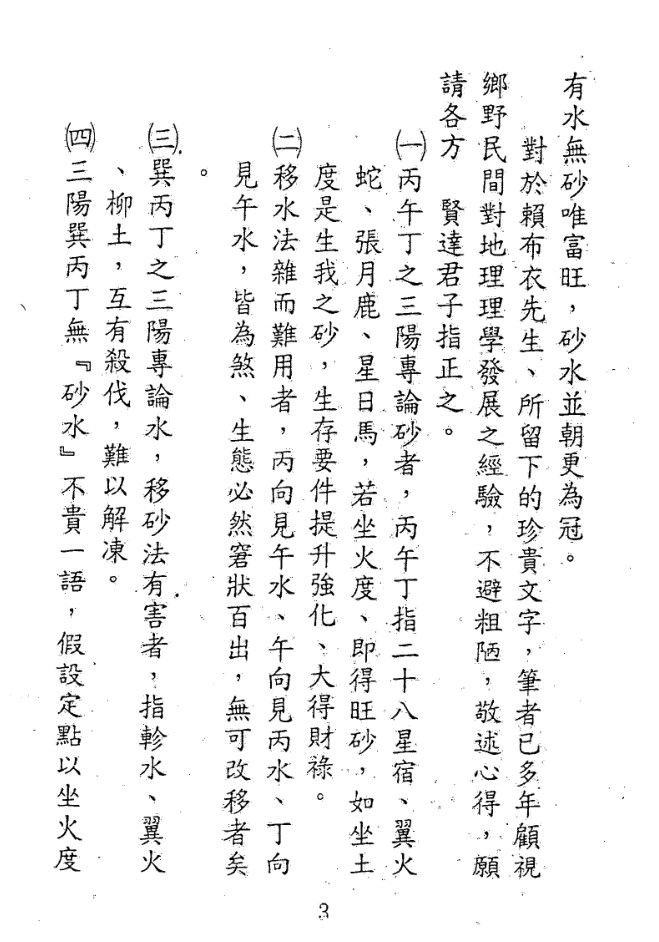 有水無砂唯富旺，砂水並朝更為冠。
對於賴布衣先生、所留下的珍貴文字，筆者已多年顧視
鄉野民間對地理理學發展之經驗，不避粗陋，敬述心得，願
請各方　賢達君子指正之。
㈠丙午丁之三陽專論砂者，丙午丁指二十八星宿、翼火
蛇、張月鹿、星日馬，若坐火度、即得旺砂，如坐土
度是生我之砂，生存要件提升強化、大得財祿。
㈡移水法雜而難用者，丙向見午水、午向見丙水、丁向
見午水，皆為煞、生態必然窘狀百出，無可改移者矣
。
㈢巽丙丁之三陽專論水，移砂法有害者，指軫水、翼火
、柳土，互有殺伐，難以解凍。
㈣三陽巽丙丁無『砂水』不貴一語，假設定點以坐火度
3